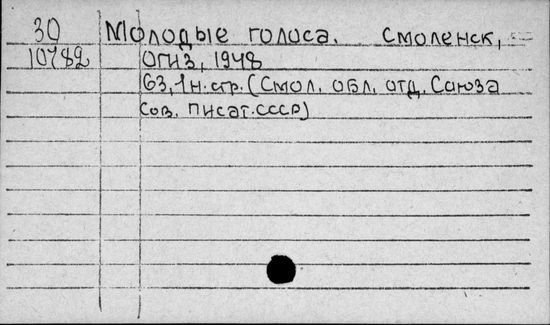 30 Молодые голоса. Смоленск,
10782 ОГИЗ, 1948
63, 1 н. стр. (Смол. обл. отд. Союза
Сов. писат. СССР)